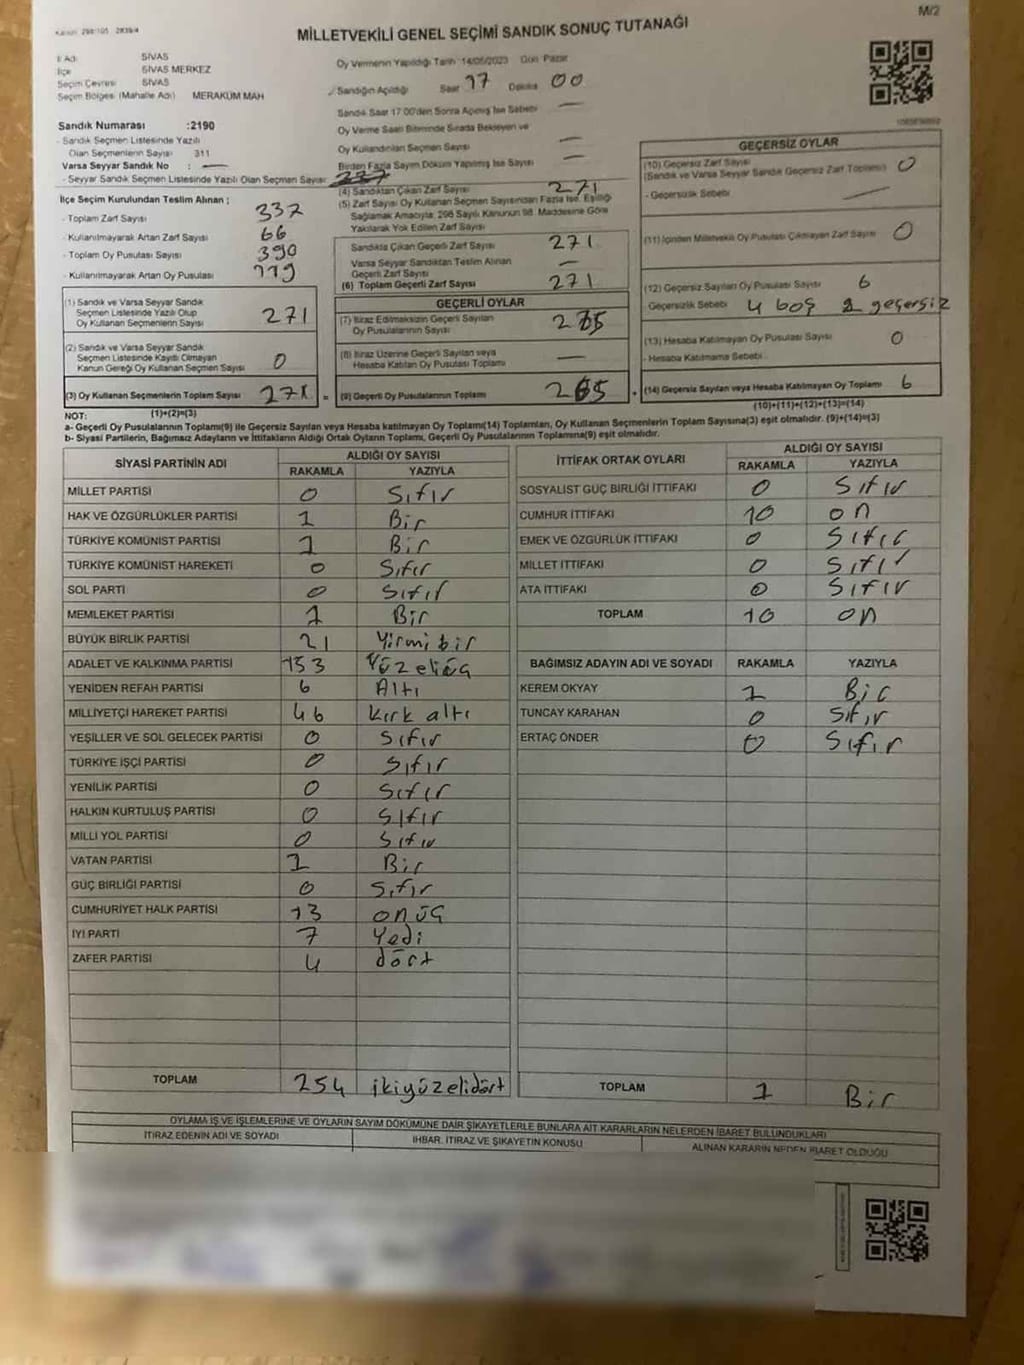 M/2
MİLLETVEKİLİ GENEL SEÇİMİ SANDIK SONUÇ TUTANAĞI
İl Adı SİVAS
İlçe SİVAS MERKEZ
Seçim Çevresi SİVAS
Seçim Bölgesi (Mahalle Adı) MERAKÜM MAH
Sandık Numarası :2190
- Sandık Seçmen Listesinde Yazılı
Olan Seçmenlerin Sayısı 311
Varsa Seyyar Sandık No : —
- Seyyar Sandık Seçmen Listesinde Yazılı Olan Seçmen Sayısı
İlçe Seçim Kurulundan Teslim Alınan ;
- Toplam Zarf Sayısı 337
- Kullanılmayarak Artan Zarf Sayısı 66
- Toplam Oy Pusulası Sayısı 390
- Kullanılmayarak Artan Oy Pusulası 119
(1) Sandık ve Varsa Seyyar Sandık
Seçmen Listesinde Yazılı Olup
Oy Kullanan Seçmenlerin Sayısı 271
(2) Sandık ve Varsa Seyyar Sandık
Seçmen Listesinde Kayıtlı Olmayan
Kanun Gereği Oy Kullanan Seçmen Sayısı 0
(3) Oy Kullanan Seçmenlerin Toplam Sayısı 271 =
Oy Vermenin Yapıldığı Tarih 14/05/2023 Gün Pazar
Sandığın Açıldığı Saat 17 Dakika 00
Sandık Saat 17.00'den Sonra Açılmış İse Sebebi —
Oy Verme Saati Bitiminde Sırada Bekleyen ve
Oy Kullandırılan Seçmen Sayısı —
Birden Fazla Sayım Döküm Yapılmış İse Sayısı —
(4) Sandıktan Çıkan Zarf Sayısı 271
(5) Zarf Sayısı Oy Kullanan Seçmen Sayısından Fazla İse, Eşitliği
Sağlamak Amacıyla; 298 Sayılı Kanunun 98. Maddesine Göre
Yakılarak Yok Edilen Zarf Sayısı
Sandıkta Çıkan Geçerli Zarf Sayısı 271
Varsa Seyyar Sandıktan Teslim Alınan
Geçerli Zarf Sayısı —
(6) Toplam Geçerli Zarf Sayısı 271
GEÇERLİ OYLAR
(7) İtiraz Edilmeksizin Geçerli Sayılan
Oy Pusulalarının Sayısı 265
(8) İtiraz Üzerine Geçerli Sayılan veya
Hesaba Katılan Oy Pusulası Toplamı —
(9) Geçerli Oy Pusulalarının Toplamı 265 +
GEÇERSİZ OYLAR
(10) Geçersiz Zarf Sayısı
(Sandık ve Varsa Seyyar Sandık Geçersiz Zarf Toplamı) 0
- Geçersizlik Sebebi —
(11) İçinden Milletvekili Oy Pusulası Çıkmayan Zarf Sayısı 0
(12) Geçersiz Sayılan Oy Pusulası Sayısı 6
Geçersizlik Sebebi 4 boş 2 geçersiz
(13) Hesaba Katılmayan Oy Pusulası Sayısı 0
- Hesaba Katılmama Sebebi
(14) Geçersiz Sayılan veya Hesaba Katılmayan Oy Toplamı 6
NOT: (1)+(2)=(3) (10)+(11)+(12)+(13)=(14)
a- Geçerli Oy Pusulalarının Toplamı(9) ile Geçersiz Sayılan veya Hesaba katılmayan Oy Toplamı(14) Toplamları, Oy Kullanan Seçmenlerin Toplam Sayısına(3) eşit olmalıdır. (9)+(14)=(3)
b- Siyasi Partilerin, Bağımsız Adayların ve İttifakların Aldığı Ortak Oyların Toplamı, Geçerli Oy Pusulalarının Toplamına(9) eşit olmalıdır.
SİYASİ PARTİNİN ADI ALDIĞI OY SAYISI
RAKAMLA YAZIYLA
MİLLET PARTİSİ 0 Sıfır
HAK VE ÖZGÜRLÜKLER PARTİSİ 1 Bir
TÜRKİYE KOMÜNİST PARTİSİ 1 Bir
TÜRKİYE KOMÜNİST HAREKETİ 0 Sıfır
SOL PARTİ 0 Sıfır
MEMLEKET PARTİSİ 1 Bir
BÜYÜK BİRLİK PARTİSİ 21 Yirmi bir
ADALET VE KALKINMA PARTİSİ 153 Yüzelliüç
YENİDEN REFAH PARTİSİ 6 Altı
MİLLİYETÇİ HAREKET PARTİSİ 46 Kırk altı
YEŞİLLER VE SOL GELECEK PARTİSİ 0 Sıfır
TÜRKİYE İŞÇİ PARTİSİ 0 Sıfır
YENİLİK PARTİSİ 0 Sıfır
HALKIN KURTULUŞ PARTİSİ 0 Sıfır
MİLLİ YOL PARTİSİ 0 Sıfır
VATAN PARTİSİ 1 Bir
GÜÇ BİRLİĞİ PARTİSİ 0 Sıfır
CUMHURİYET HALK PARTİSİ 13 onüç
İYİ PARTİ 7 Yedi
ZAFER PARTİSİ 4 dört
TOPLAM 254 ikiyüzelidört
İTTİFAK ORTAK OYLARI ALDIĞI OY SAYISI
RAKAMLA YAZIYLA
SOSYALİST GÜÇ BİRLİĞİ İTTİFAKI 0 Sıfır
CUMHUR İTTİFAKI 10 on
EMEK VE ÖZGÜRLÜK İTTİFAKI 0 Sıfır
MİLLET İTTİFAKI 0 Sıfır
ATA İTTİFAKI 0 Sıfır
TOPLAM 10 on
BAĞIMSIZ ADAYIN ADI VE SOYADI RAKAMLA YAZIYLA
KEREM OKYAY 1 Bir
TUNCAY KARAHAN 0 Sıfır
ERTAÇ ÖNDER 0 Sıfır
TOPLAM 1 Bir
OYLAMA İŞ VE İŞLEMLERİNE VE OYLARIN SAYIM DÖKÜMÜNE DAİR ŞİKAYETLERLE BUNLARA AİT KARARLARIN NELERDEN İBARET BULUNDUKLARI
İTİRAZ EDENİN ADI VE SOYADI İHBAR, İTİRAZ VE ŞİKAYETİN KONUSU ALINAN KARARIN NEDEN İBARET OLDUĞU